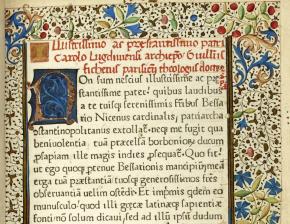 Illustrissimo ac præstantissimo patri
Carolo Lugdunensi archiepo Guillermus
fichetus parisien theologus doctor
Non sum nescius illustrissime ac præ
stantissime pater quibus laudibus
a te tuisque serenissimis fribus Bessa
rio Nicenus cardinalis, patriarcha
ostantinopolitanus extollat, neque me fugit qua
beniuolentia, tua præcelsa borboniorum ducum
prosapiam, ille magis indies prosequat. Quo fit
ut ego quoque pene Bessarionis mancipium, mea
erga tua præstantia tuosque generosissimos fres
obseruantia uelim ostedi. Et imprimis qdem eo
munusculo, quod illi græcæ latinæque sapientiæ
fonti non solum dicaui, sed ad illu ipsu dudum